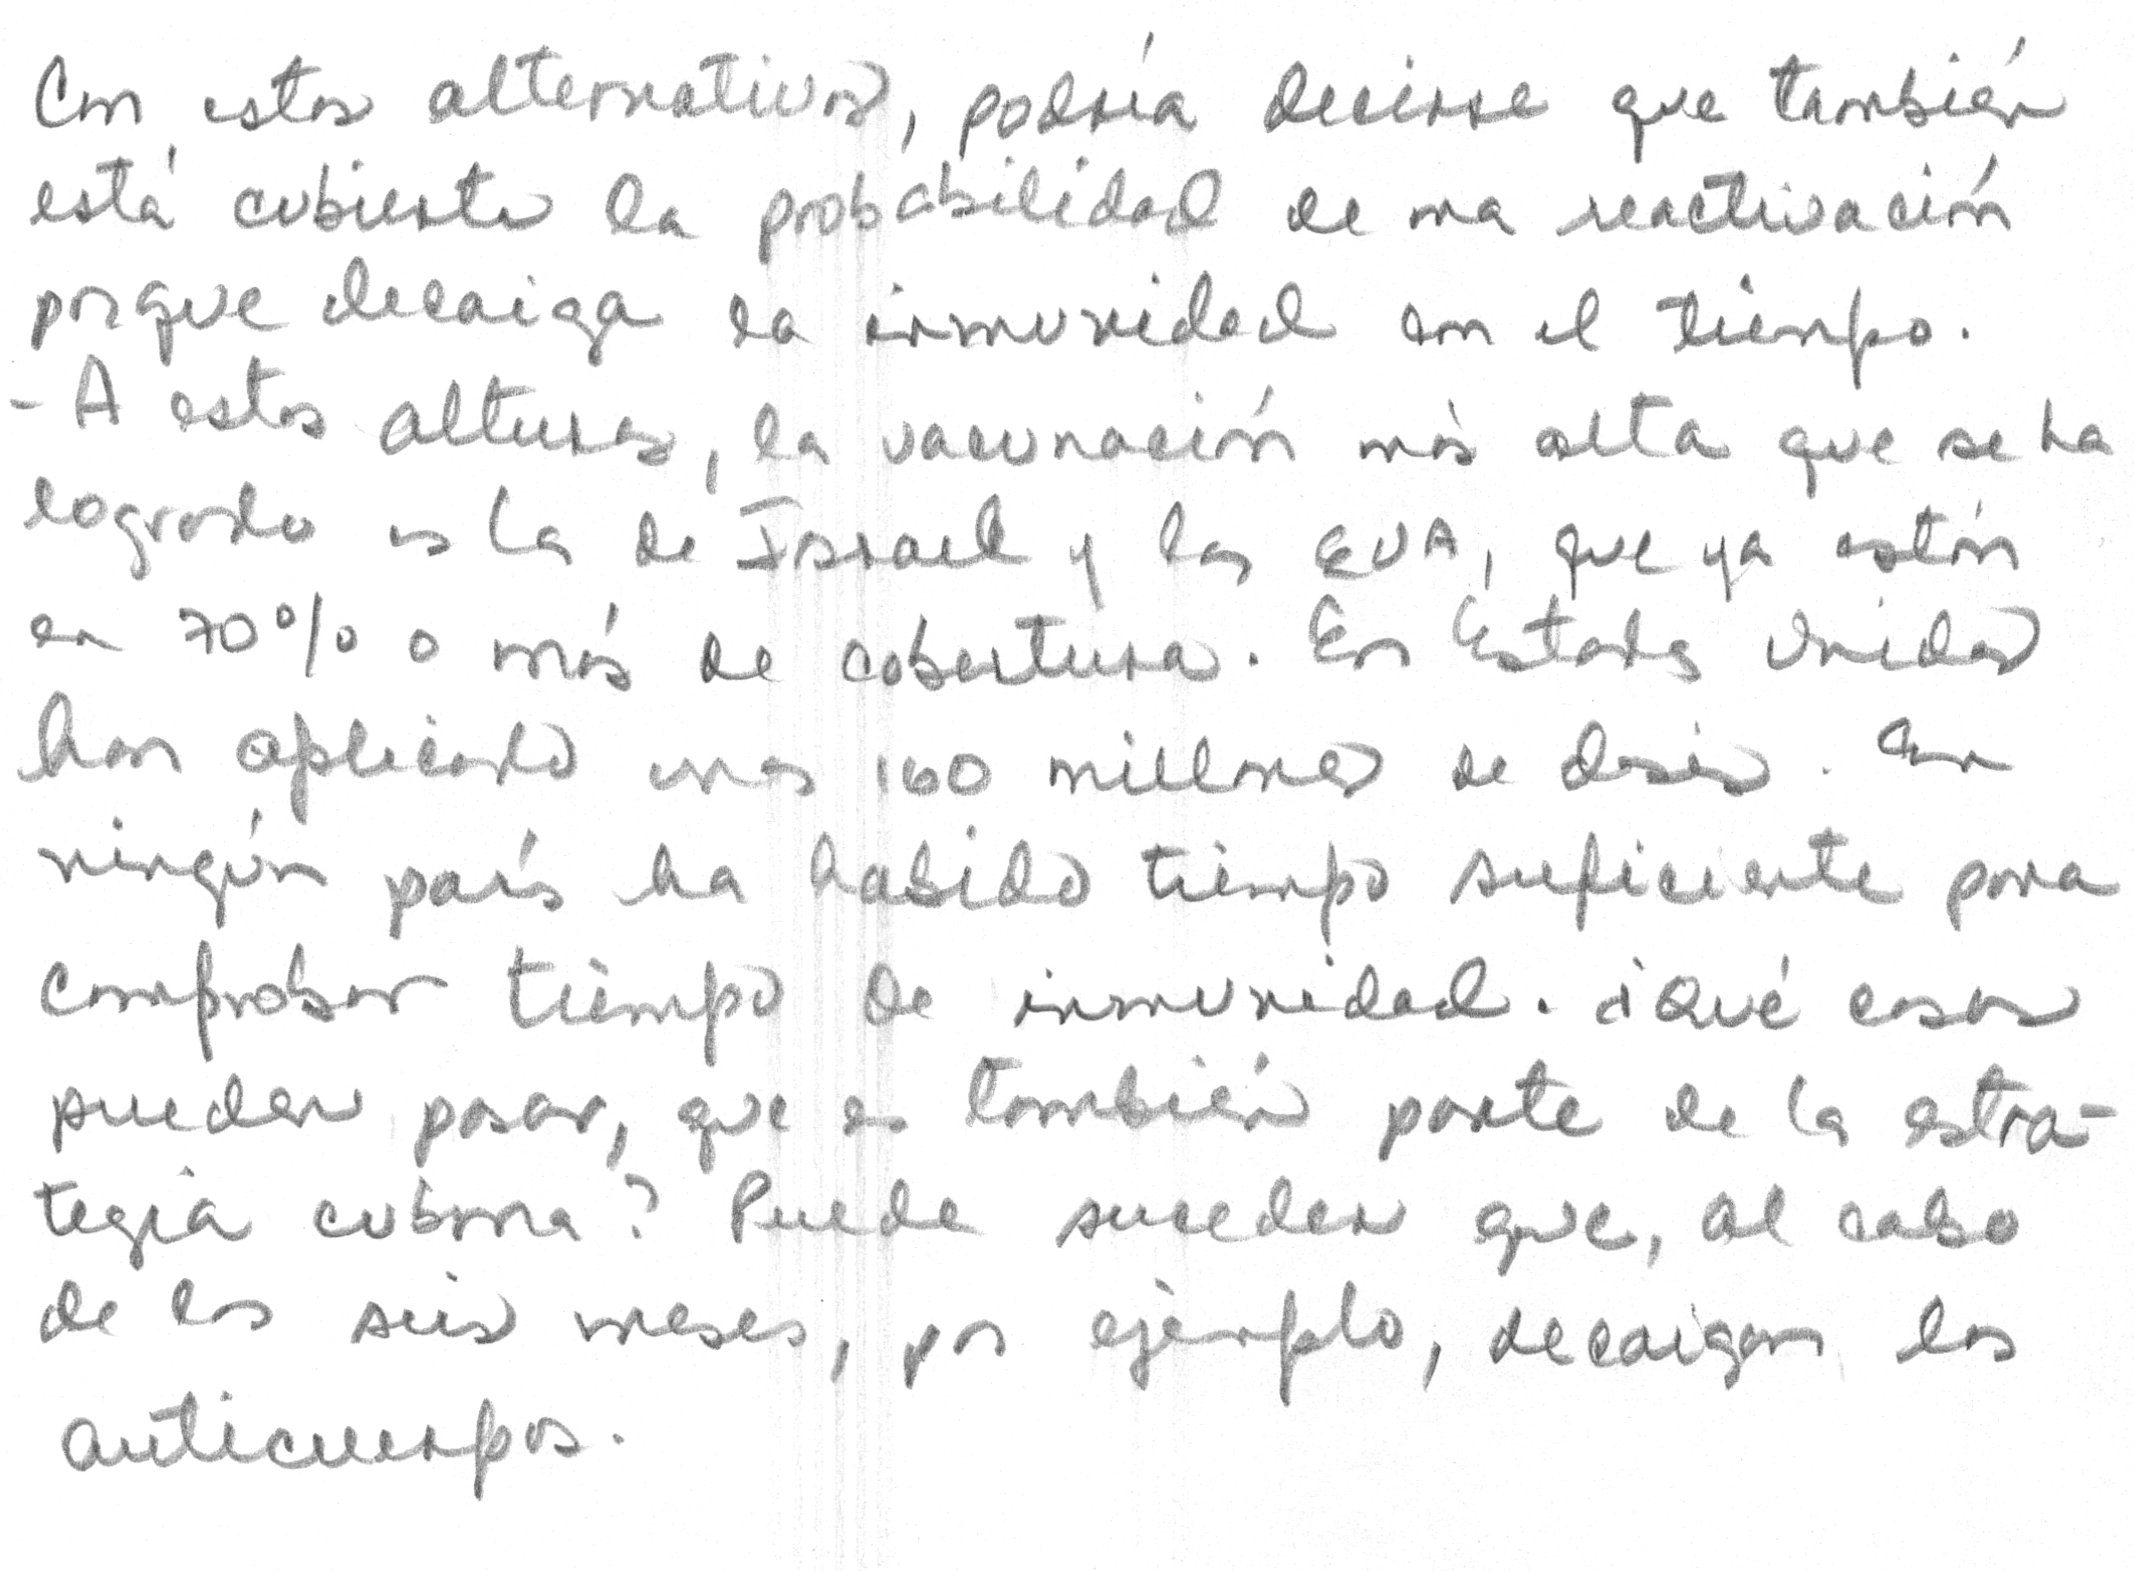 Con estas alternativas, podría decirse que también
está cubierta la probabilidad de una reactivación
porque decaiga la inmunidad en el tiempo.
- A estas alturas, la vacunación más alta que se ha
logrado es la de Israel y los EUA, que ya están
en 70% o más de cobertura. En Estados Unidos
han aplicado unas 160 millones de dosis. En
ningún país ha habido tiempo suficiente para
comprobar tiempo de inmunidad. ¿Qué cosas
pueden pasar, que es también parte de la estra-
tegia cubana? Puede suceder que, al cabo
de los seis meses, por ejemplo, decaigan los
anticuerpos.